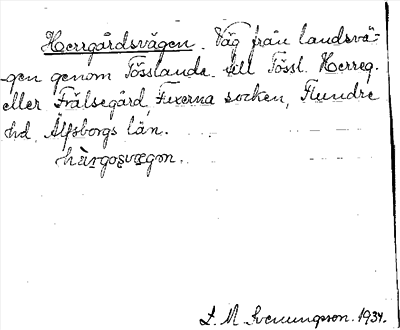 Herrgårdsvägen. Väg från landsvä-
gen genom Tösslanda till Tössl. Herreg.
eller Frälsegård Fuxerna socken, Flundre
hd. Älfsborgs län.
hàrgoṣvægɷn.
S. M. Svenungsson. 1934.